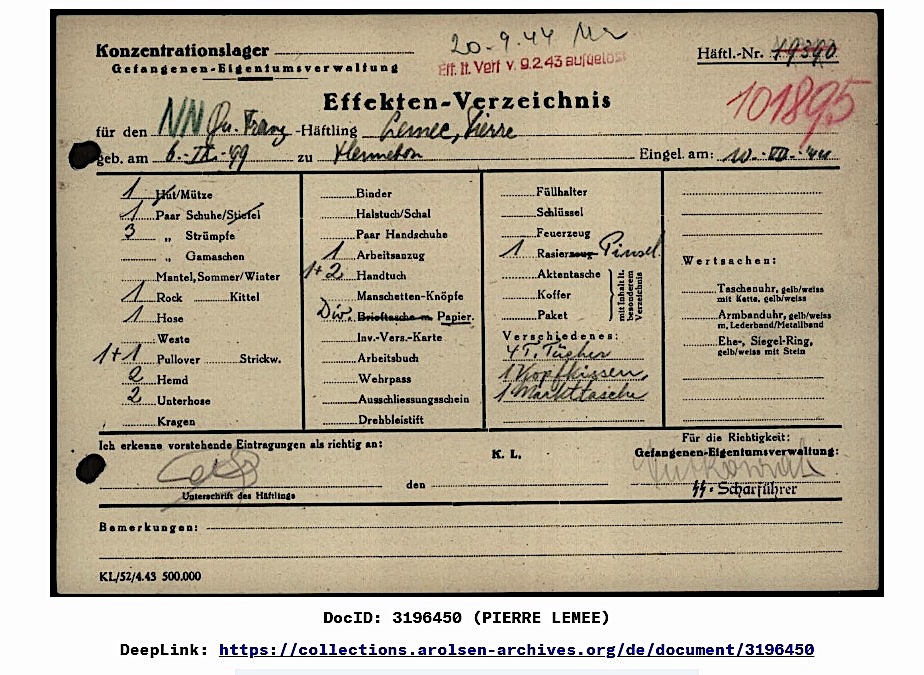 20.-9.44
Konzentrationslager
Häftl.-Nr. 19390
Gefangenen-Eigentumsverwaltung
Eff. lt. Verf v. 9.2.43 aufgelöst
Effekten-Verzeichnis
101895
für den NN Franz -Häftling Lemee, Pierre
geb. am 6.-IX.-99 zu Eingel. am: 10.-VII.-'44
1 Hut/Mütze
1 Paar Schuhe/Stiefel
3 „ Strümpfe
„ Gamaschen
Mantel, Sommer/Winter
1 Rock Kittel
1 Hose
Weste
1+1 Pullover Strickw.
2 Hemd
2 Unterhose
Kragen
Binder
Halstuch/Schal
Paar Handschuhe
1 Arbeitsanzug
1+2 Handtuch
Manschetten-Knöpfe
Div. Brieftasche m Papier.
Inv.-Vers.-Karte
Arbeitsbuch
Wehrpass
Ausschliessungsschein
Drehbleistift
Füllhalter
Schlüssel
Feuerzeug
1 Rasierzeug Pinsel
Aktentasche
Koffer
Paket
mit Inhalt lt. besonderem Verzeichnis
Verschiedenes:
4 T. Tücher
1 Kopfkissen,
1 Markttasche
Wertsachen:
Taschenuhr, gelb/weiss
mit Kette, gelb/weiss
Armbanduhr, gelb/weiss
m. Lederband/Metallband
Ehe-, Siegel-Ring,
gelb/weiss mit Stein
Ich erkenne vorstehende Eintragungen als richtig an:
K. L.
Für die Richtigkeit:
Gefangenen-Eigentumsverwaltung:
den
Unterschrift des Häftlings
SS-Scharführer
Bemerkungen:
KL/52/4.43 500.000
DocID: 3196450 (PIERRE LEMEE)
DeepLink: https://collections.arolsen-archives.org/de/document/3196450